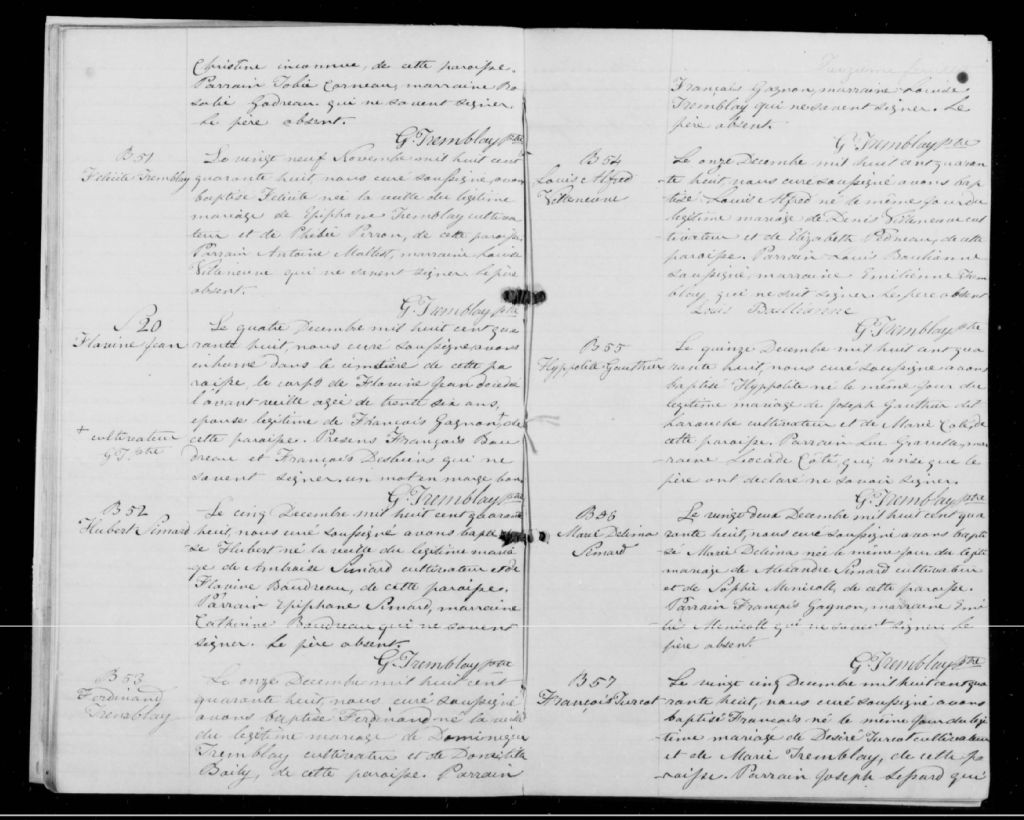 Christine inconnue, de cette paroisse.
Parrain Tobie Corneau, marraine Ro
salie Godreau qui ne savent signer.
Le père absent.
G. Tremblay ptre
B 51
Félicité Tremblay
Le vingt neuf Novembre mil huit cent
quarante huit, nous curé soussigné avons
baptisé Félicité née la veille du légitime
mariage de Epiphane Tremblay cultiva
teur et de Phébée Perron, de cette paroisse.
Parrain Antoine Maltest, marraine Louise
Villeneuve qui ne savent signer le père
absent.
G. Tremblay ptre
S 20
Flavine Jean
Le quatre Decembre mil huit cent qua
rante huit, nous curé soussigné avons
inhumé dans le cimetière de cette pa
roisse, le corps de Flavine Jean décédé
l'avant veille agée de trente six ans,
epouse légitime de François Gagnon, † de
cette paroisse. Presens François Bou
dreau et François Desbiens qui ne
savent signer un mot en marge bon
† cultivateur
G T. ptre
G. Tremblay ptre
B 52
Hubert Simard
Le cinq Decembre mil huit cent quarante
huit, nous curé soussigné avons bapti
sé Hubert né la veille du légitime maria
ge de Ambroise Simard cultivateur et de
Flavine Boudreau, de cette paroisse.
Parrain Epiphane Simard, marraine
Catherine Boudreau qui ne savent
signer. Le père absent.
G. Tremblay ptre
B 53
Ferdinand
Tremblay
Le onze Decembre mil huit cent
quarante huit, nous curé soussigné
avons baptisé Ferdinand né la veille
du légitime mariage de Dominique
Tremblay cultivateur et de Domitilde
Baily, de cette paroisse. Parrain
François Gagnon, marraine Louise
Tremblay qui ne savent signer. Le
père absent.
G. Tremblay ptre
B 54
Louis Alfred
Villeneuve
Le onze Decembre mil huit cent quaran
te huit, nous curé soussigné avons bap
tisé Louis Alfred né le même jour du
légitime mariage de Denis Villeneuve cul
tivateur et de Elizabeth Pedneau, de cette
paroisse. Parrain Louis Boulianne
soussigné, marraine Emilienne Trem
blay qui ne sait signer. Le père absent
Louis Boullianne
G. Tremblay ptre
B 55
Hyppolite Gauthier
Le quinze Decembre mil huit cent qua
rante huit, nous curé soussigné avons
baptisé Hyppolite né le même jour du
légitime mariage de Joseph Gauthier dit
Larouche cultivateur et de Marie Coté, de
cette paroisse. Parrain Luc Gravelle, mar
raine Léocade Côté, qui, ainsi que le
père ont declaré ne savoir signer.
G. Tremblay ptre
B 56
Marie Delima
Simard
Le vingt deux Decembre mil huit cent qua
rante huit, nous curé soussigné avons bapti
sé Marie Delima née le même jour du légiti
mariage de Alexandre Simard cultivateur
et de Sophie Menicolt, de cette paroisse.
Parrain François Gagnon, marraine Emi
lie Menicolt qui ne savent signer. Le
père absent.
G. Tremblay ptre
B 57
François Turcot
Le vingt cinq Decembre mil huit cent qua
rante huit, nous curé soussigné avons
baptisé François né le même jour du légi
time mariage de Desiré Turcot cultivateur
et de Marie Tremblay, de cette pa
roisse. Parrain Joseph Lessard qui